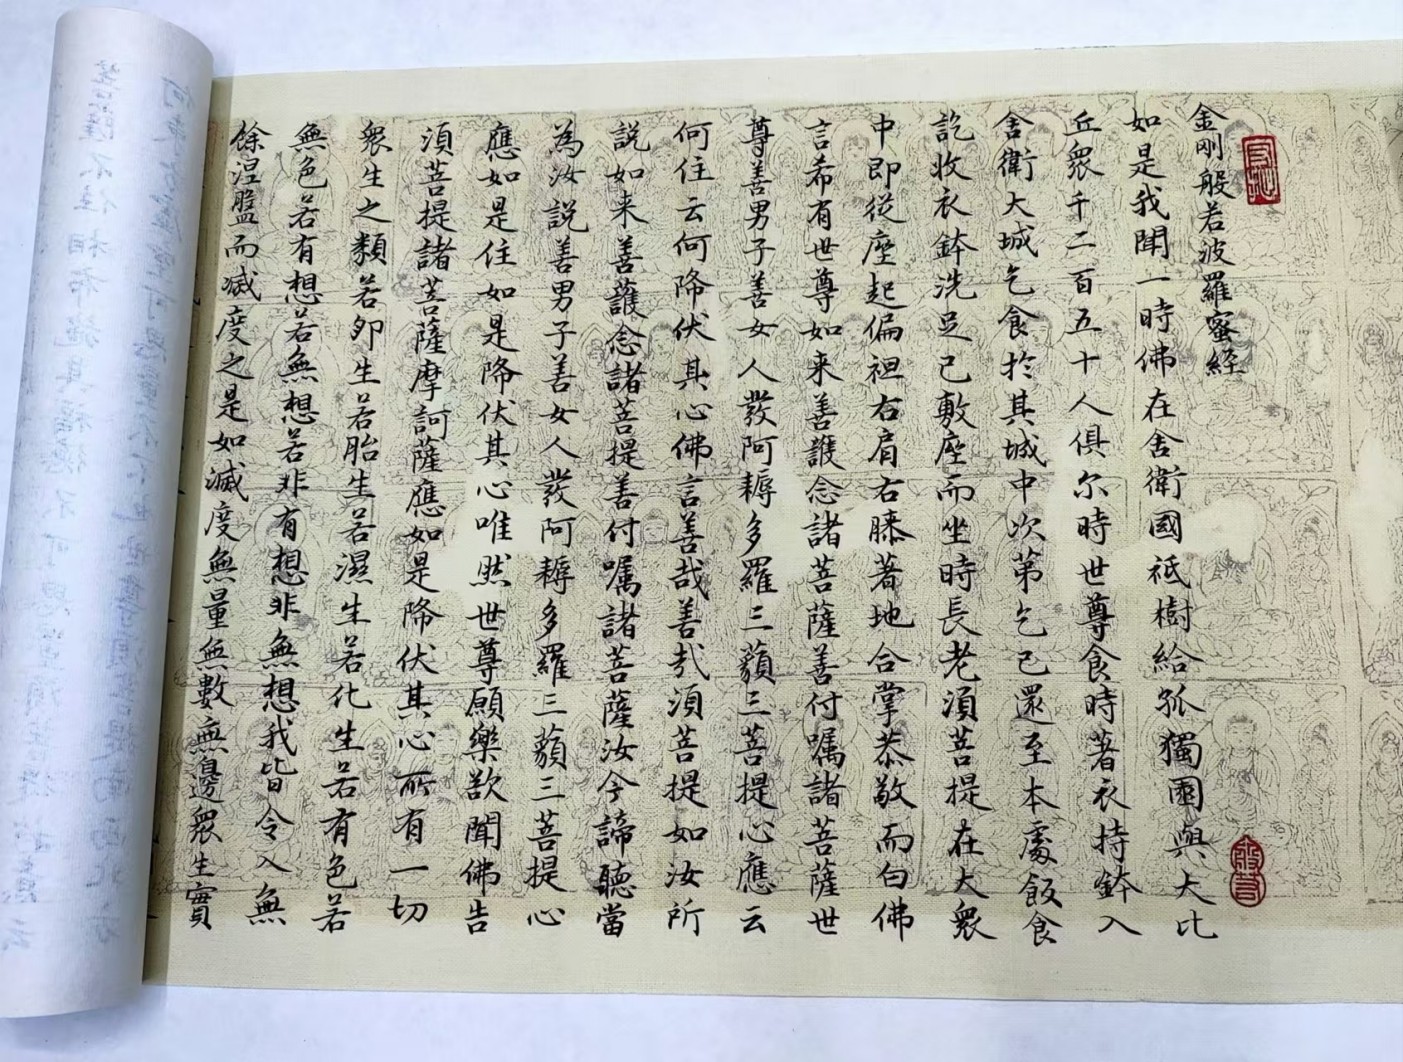 金剛般若波羅蜜經
如是我聞一時佛在舍衛國祇樹給孤獨園與大比
丘眾千二百五十人俱尔時世尊食時著衣持鉢入
舍衛大城乞食於其城中次第乞已還至本處飯食
訖收衣鉢洗足已敷座而坐時長老須菩提在大眾
中即從座起偏袒右肩右膝著地合掌恭敬而白佛
言希有世尊如来善護念諸菩薩善付嘱諸菩薩世
尊善男子善女人發阿耨多羅三藐三菩提心應云
何住云何降伏其心佛言善哉善哉須菩提如汝所
説如来善護念諸菩提善付嘱諸菩薩汝今諦聽當
為汝説善男子善女人發阿耨多羅三藐三菩提心
應如是住如是降伏其心唯然世尊願樂欲聞佛告
須菩提諸菩薩摩訶薩應如是降伏其心所有一切
眾生之類若卵生若胎生若濕生若化生若有色若
無色若有想若無想若非有想非無想我皆令入無
餘涅盤而滅度之是如滅度無量無數無邊眾生實